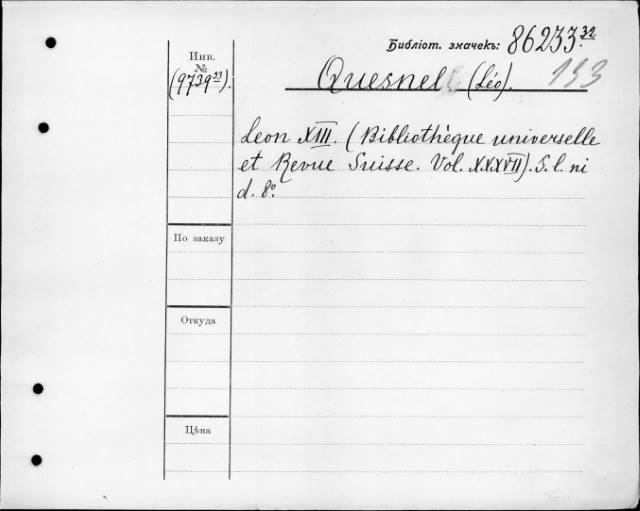 Библіот. значекъ: 86233.32
Инв.
№
(9739 33).
Quesnel (Léo). 133
Leon XIII. (Bibliothèque universelle
et Revue Suisse. Vol. XXXVII). S. l. ni
d. 8º.
По заказу
Откуда
Цѣна